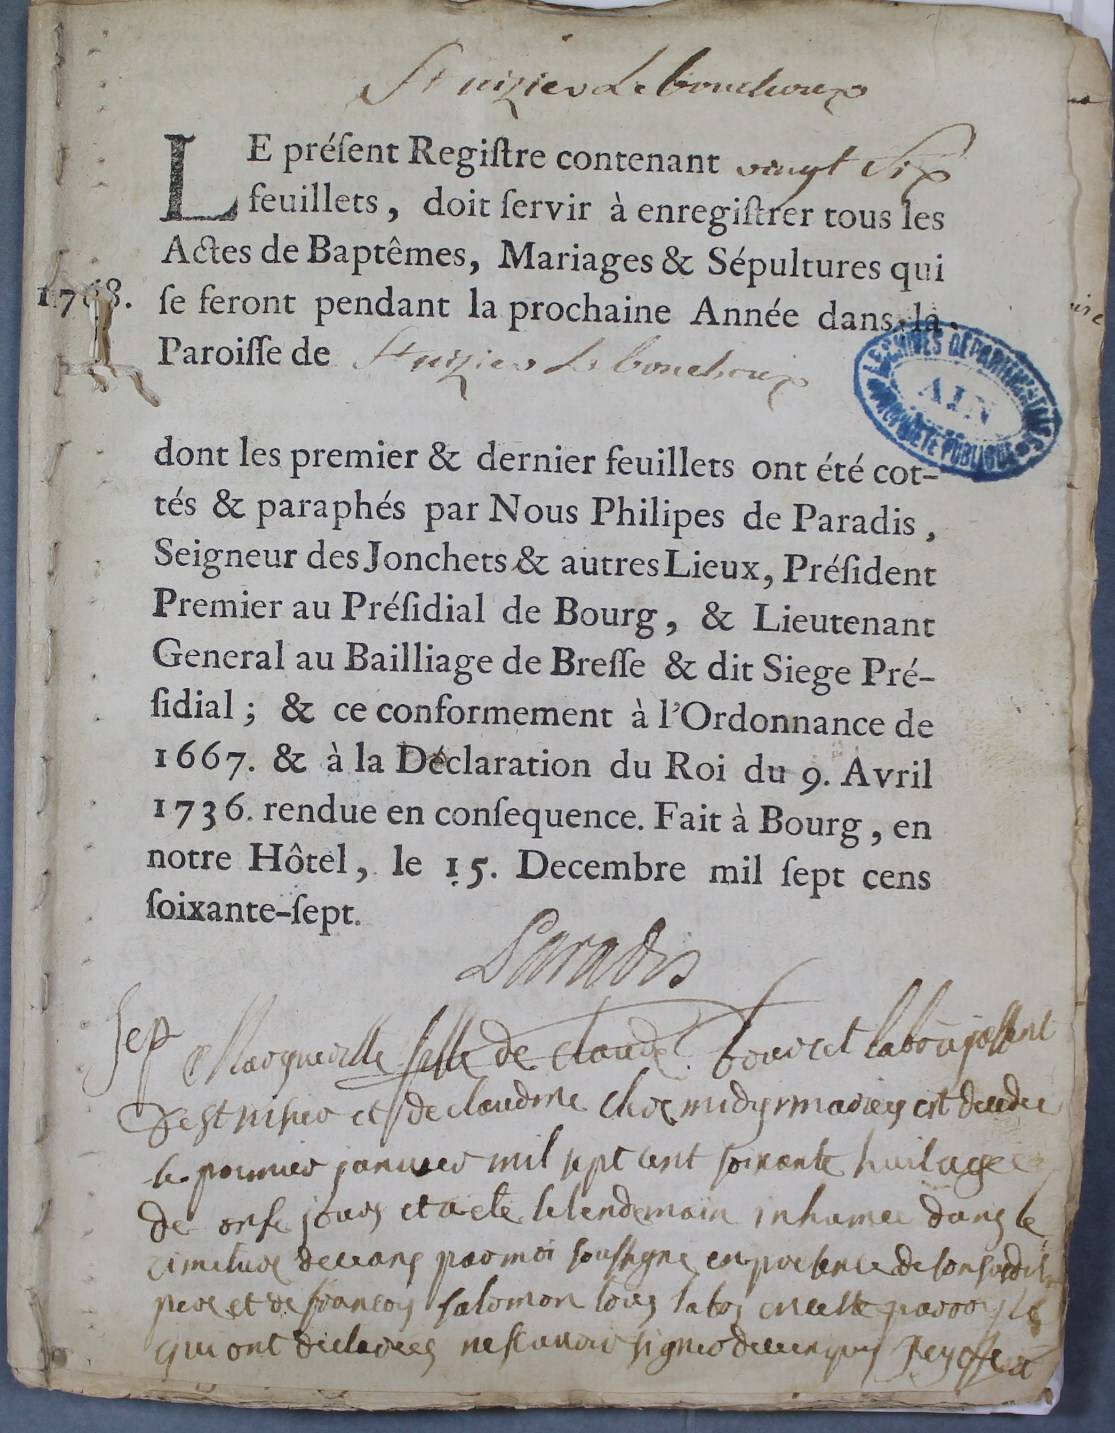 St nizier Le bouchoux
LE préſent Regiſtre contenant vingt Six
feuillets, doit ſervir à enregiſtrer tous les
Actes de Baptêmes, Mariages & Sépultures qui
1768. ſe feront pendant la prochaine Année dans la
Paroiſſe de St nizier Le bouchoux
ARCHIVES DÉPARTEMENTALES
AIN
PROPRIÉTÉ PUBLIQUE
dont les premier & dernier feuillets ont été cot-
tés & paraphés par Nous Philipes de Paradis,
Seigneur des Jonchets & autres Lieux, Préſident
Premier au Préſidial de Bourg, & Lieutenant
General au Bailliage de Breſſe & dit Siege Pré-
ſidial; & ce conformement à l'Ordonnance de
1667. & à la Déclaration du Roi du 9. Avril
1736. rendue en conſequence. Fait à Bourg, en
notre Hôtel, le 15. Decembre mil ſept cens
ſoixante-ſept.
Paradis
Sep Margueritte fille de claude
de st nisier et de claudine mariés est decedee
le premier janvier mil sept cent soixante huit agee
de onse jours et a eté le lendemain inhumee dans le
cimetiere de ceans par moi soussigné en presence de son
pere et de françois salomon
qui ont declarés ne scavoir signer de ce enquis